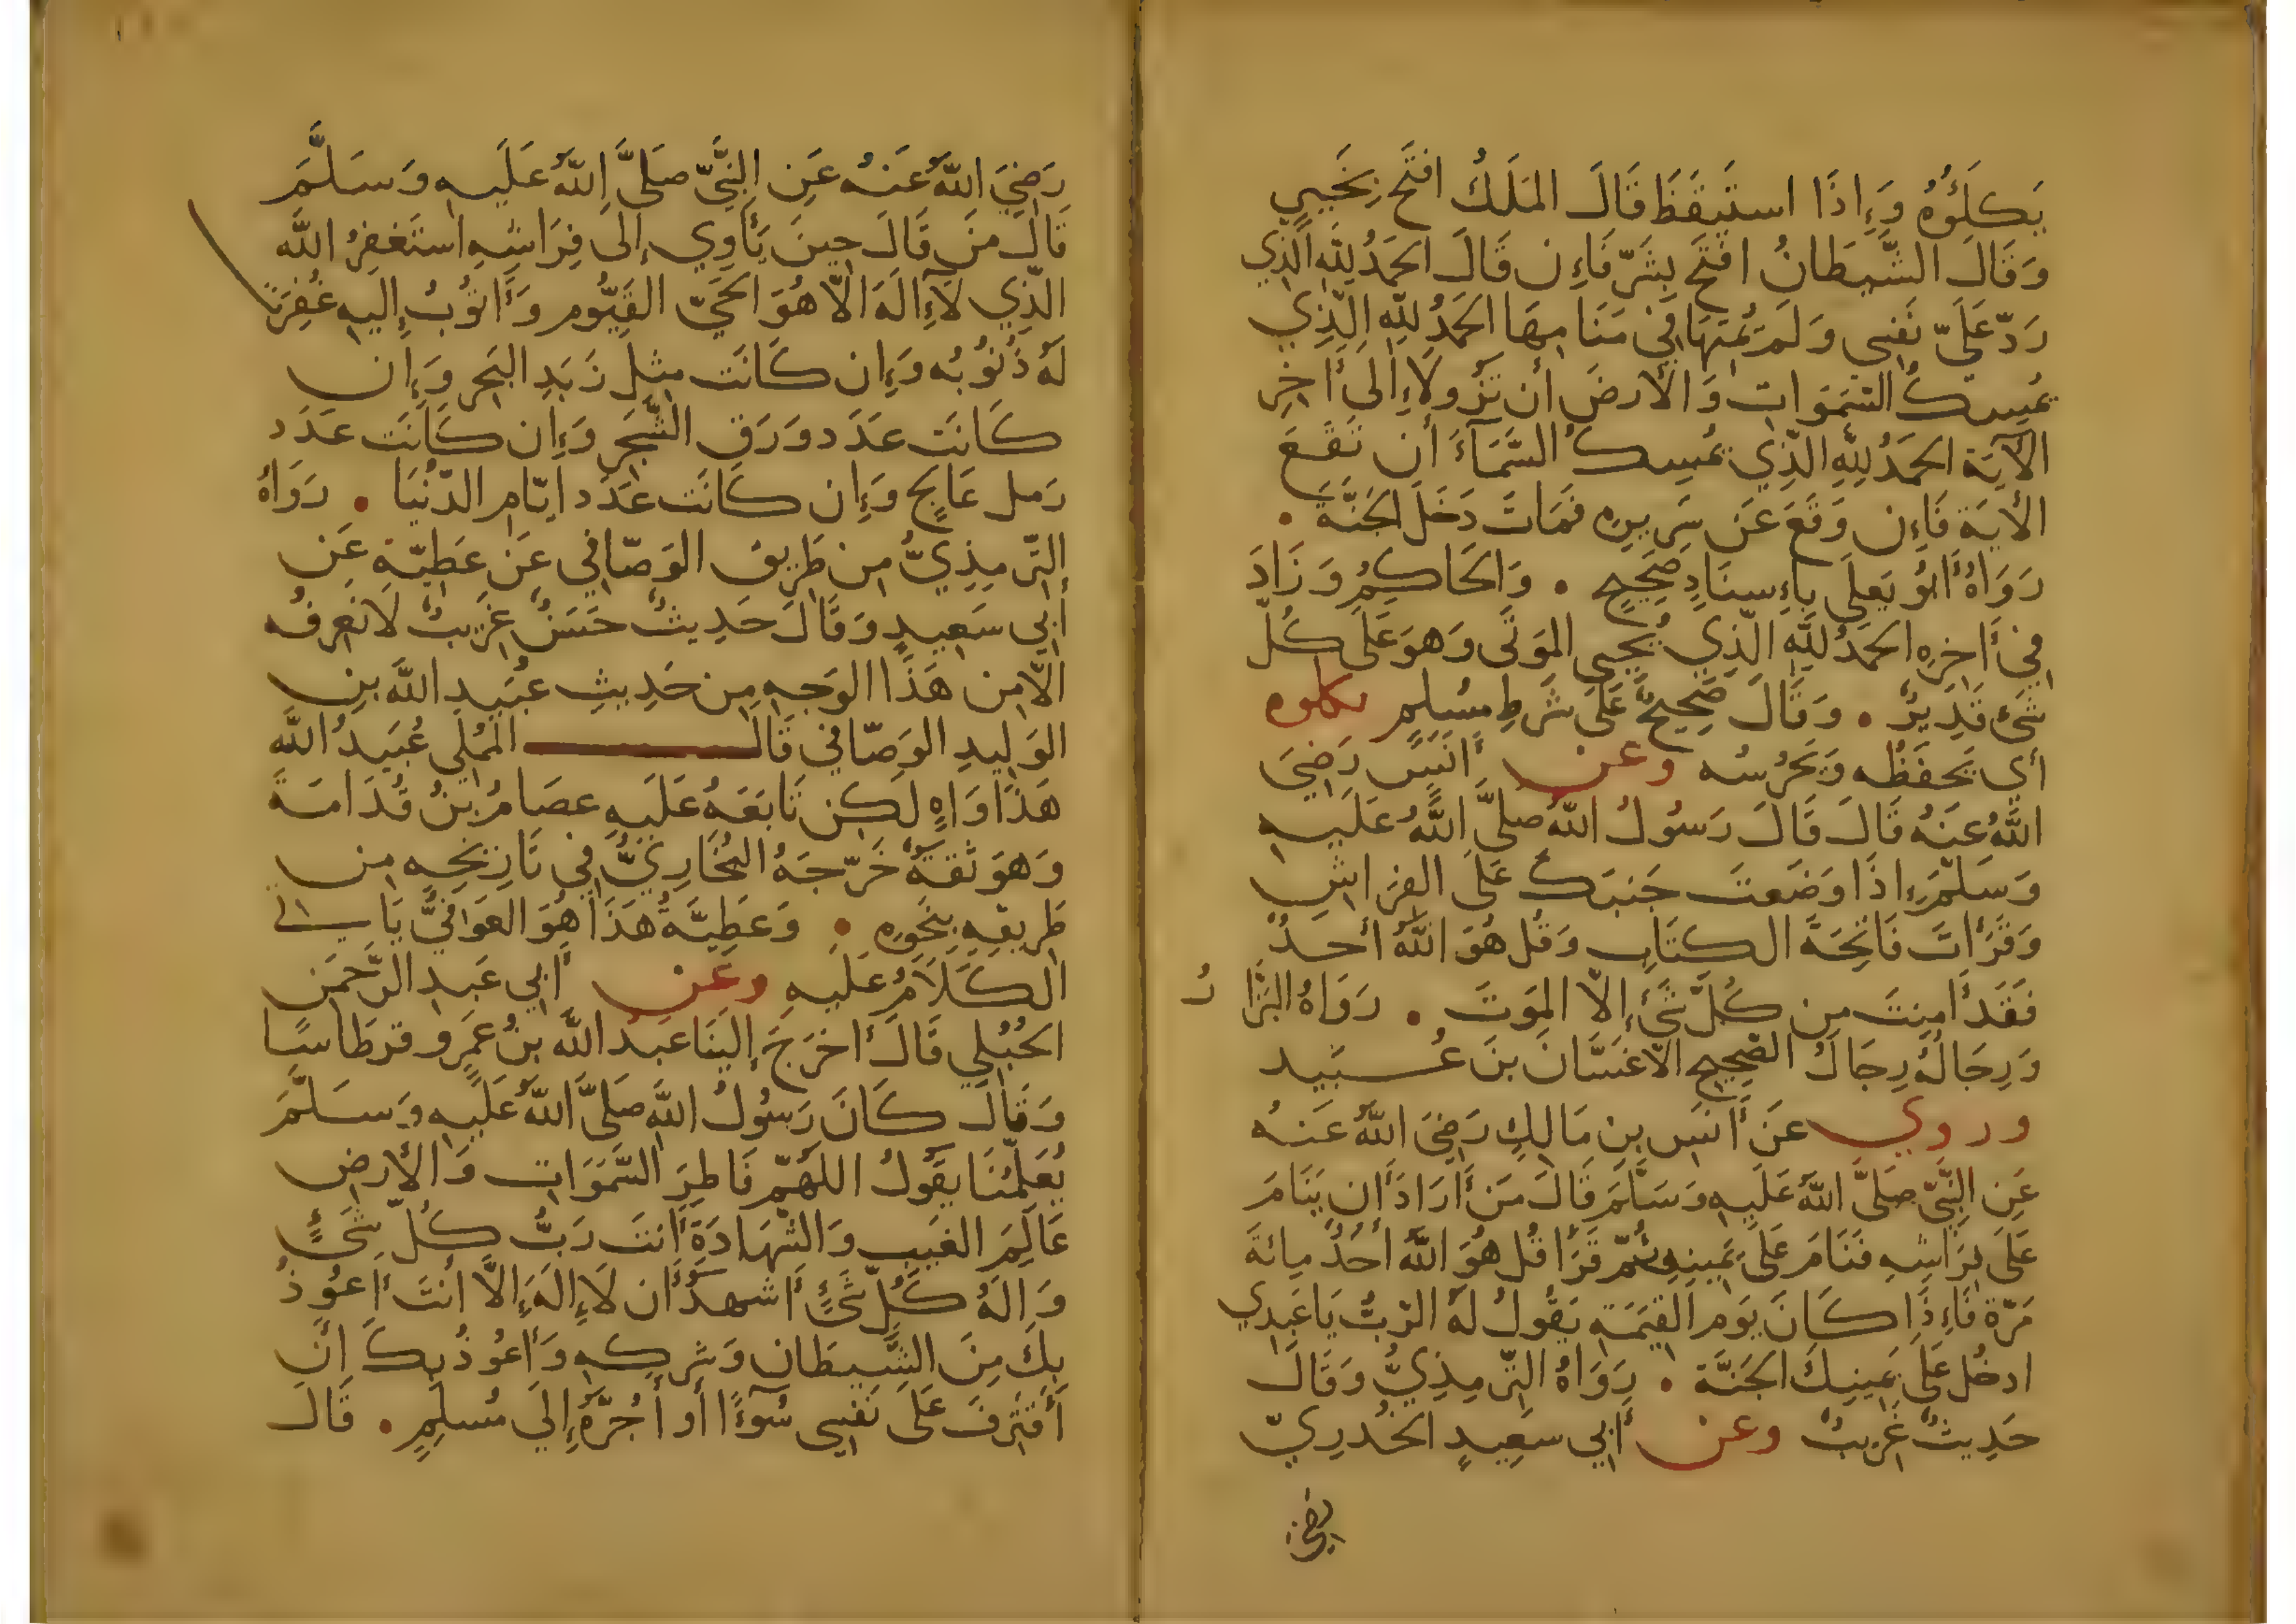 يَكلَؤُهُ وَإِذَا استَيقَظَ قَالَ المَلَكُ افتَح بِخَيرٍ
وَقَالَ الشَّيطَانُ افتَح بِشَرٍّ فَإِن قَالَ الحَمدُ لِلَّهِ الَّذِي
رَدَّ عَلَيَّ نَفسِى وَلَم يُمِتهَا فِي مَنَامِهَا الحَمدُ لِلَّهِ الَّذِي
يُمسِكُ السَّمَوَاتِ وَالأَرضَ أَن تَزُولاَ إِلَى أَخِرِ
الأَيَة الحَمدُ لِلَّهِ الَّذِي يُمسِكُ السَّمَآءَ أَن تَقَعَ
الأَيَة فَإِن وَقَعَ عَن سَرِيرِهِ فَمَاتَ دَخَلَ الجَنَّةَ .
رَوَاهُ أَبُو يَعلَى بِإِسنَادٍ صَحِيحٍ . وَالحَاكِمُ وَزَادَ
فِي أَخِرِهِ الحَمدُ لِلَّهِ الَّذِي يُحيِي المَوتَى وَهوَ عَلَى كُلِّ
شَيءٍ قَدِيرٌ . وَقَالَ صَحِيحٌ عَلَى شَرطِ مُسلِمٍ يكلوه
أي يَحفَظُه وَيَحرُسُه وعن أَنَسٍ رَضِيَ
اللَّهُ عَنهُ قَالَ قَالَ رَسُولُ اللَّه صَلَّى اللَّهُ عَلَيهِ
وَسَلَّمَ إِذَا وَضَعتَ جَنبَكَ عَلَى الفِرَاشِ
وَقَرَأتَ فَاتِحَةَ الكِتَابِ وَقُل هُوَ اللَّهُ أَحَدٌ
فَقَد أَمِنتَ مِن كُلِّ شَيءٍ إِلاَّ المَوتَ . رَوَاهُ البَزَّارُ
وَرِجَالُهُ رِجَالُ الصَّحِيحِ إلاَّ غَسَّانَ بنَ عُبَيد
وروي عَن أَنَسِ بنِ مَالِكٍ رَضِيَ اللَّهُ عَنهُ
عَنِ النَّبِيِّ صَلَّى اللَّهُ عَلَيهِ وَسَلَّمَ قَالَ مَن أَرَادَ أَن يَنَامَ
عَلَى فِرَاشِهِ فَنَامَ عَلَى يَمِينِهِ ثُمَّ قَرَأَ قُل هُوَ اللَّهُ أَحَدٌ مِائَةَ
مَرَّة فَإِذَا كَانَ يَوم القِيَمَةِ يَقُولُ لَهُ الرَّبُّ يَا عَبدِي
ادخُل عَلَى يَمِينِكَ الجَنَّة . رَوَاهُ التِّرمِذِيُّ وَقَالَ
حَدِيثٌ غَرِيبٌ وعن أَبِي سَعِيدٍ الخُدرِيِّ
رَضِيَ
رَضِيَ اللَّهُ عَنهُ عَنِ النَّبِيِّ صَلَّى اللَّهُ عَلَيهِ وَسَلَّمَ
قَالَ مَن قَالَ حِينَ يَأوِي إِلَى فِرَاشِهِ استَغفِرُ اللَّه
الَّذِي لاَ إِلَهَ الاَّ هُوَ الحَيَّ القَيُّوم وَأَتُوبُ إِلَيهِ غُفِرَت
لَهُ ذُنُوبُه وَإِن كَانَت مِثلَ زَبَدِ البَحرِ وَإِن
كَانَت عَدَد وَرَقِ الشَّجَرِ وَإِن كَانَت عَدَد
رَمل عَالِجٍ وَإِن كَانَت عَدَد ايَّامِ الدُّنيَا . رَوَاهُ
التِّرمِذِيُّ مِن طَرِيقِ الوَصَّافِي عَن عَطِيَّة عَن
أَبِي سَعِيدٍ وَقَالَ حَدِيثٌ حَسَنٌ غَرِيبٌ لاَ نَعرِفُه
الاَّ مِن هَذَا الوَجهِ مِن حَدِيثِ عُبَيدِ اللَّه بنِ
الوَلِيدِ الوَصَّافي قَالَ المُملِي عُبَيدُ اللَّهِ
هَذَا وَاهٍ لَكِن تَابَعَهُ عَلَيهِ عصَامُ بنُ قُدَامَة
وَهوَ ثَقَةٌ خَرَّجَهُ البُخَارِيُّ فِي تَارِيخِهِ مِن
طَرِيقِهِ بِنَحوِهِ . وَعَطِيَّةُ هَذَا هُوَ العَوفِيُّ يَاتِي
الكَلاَمُ عَلَيهِ وعَن أَبِي عَبدِ الرَّحمَنِ
الحُبُلِي قَالَ أَخرَجَ إِلَينَا عَبدُ اللَّه بنُ عَمرٍو قرطَاسًا
وَقَالَ كَانَ رَسُولُ اللَّهِ صَلَّى اللَّهُ عَلَيهِ وَسَلَّمَ
يُعَلِّمُنَا يَقُولُ اللَّهُمَّ فَاطِرَ السَّمَوَاتِ وَالأَرضِ
عَالِمَ الغَيبِ وَالشَّهَادَةِ أَنتَ رَبُّ كُلِّ شَيءٍ
وَالَهُ كُلِّ شَيءٍ أَشهَدُ أَن لاَ إِلَهَ إِلاَّ أَنتَ أَعُوذُ
بِكَ مِنَ الشَّيطَانِ وَشركِهِ وَأَعُوذُ بِكَ أَن
أَقتَرِفَ عَلَى نَفسِى سُوءًا أَو أَجُرَّهُ إِلَى مُسلِمٍ . قَالَ